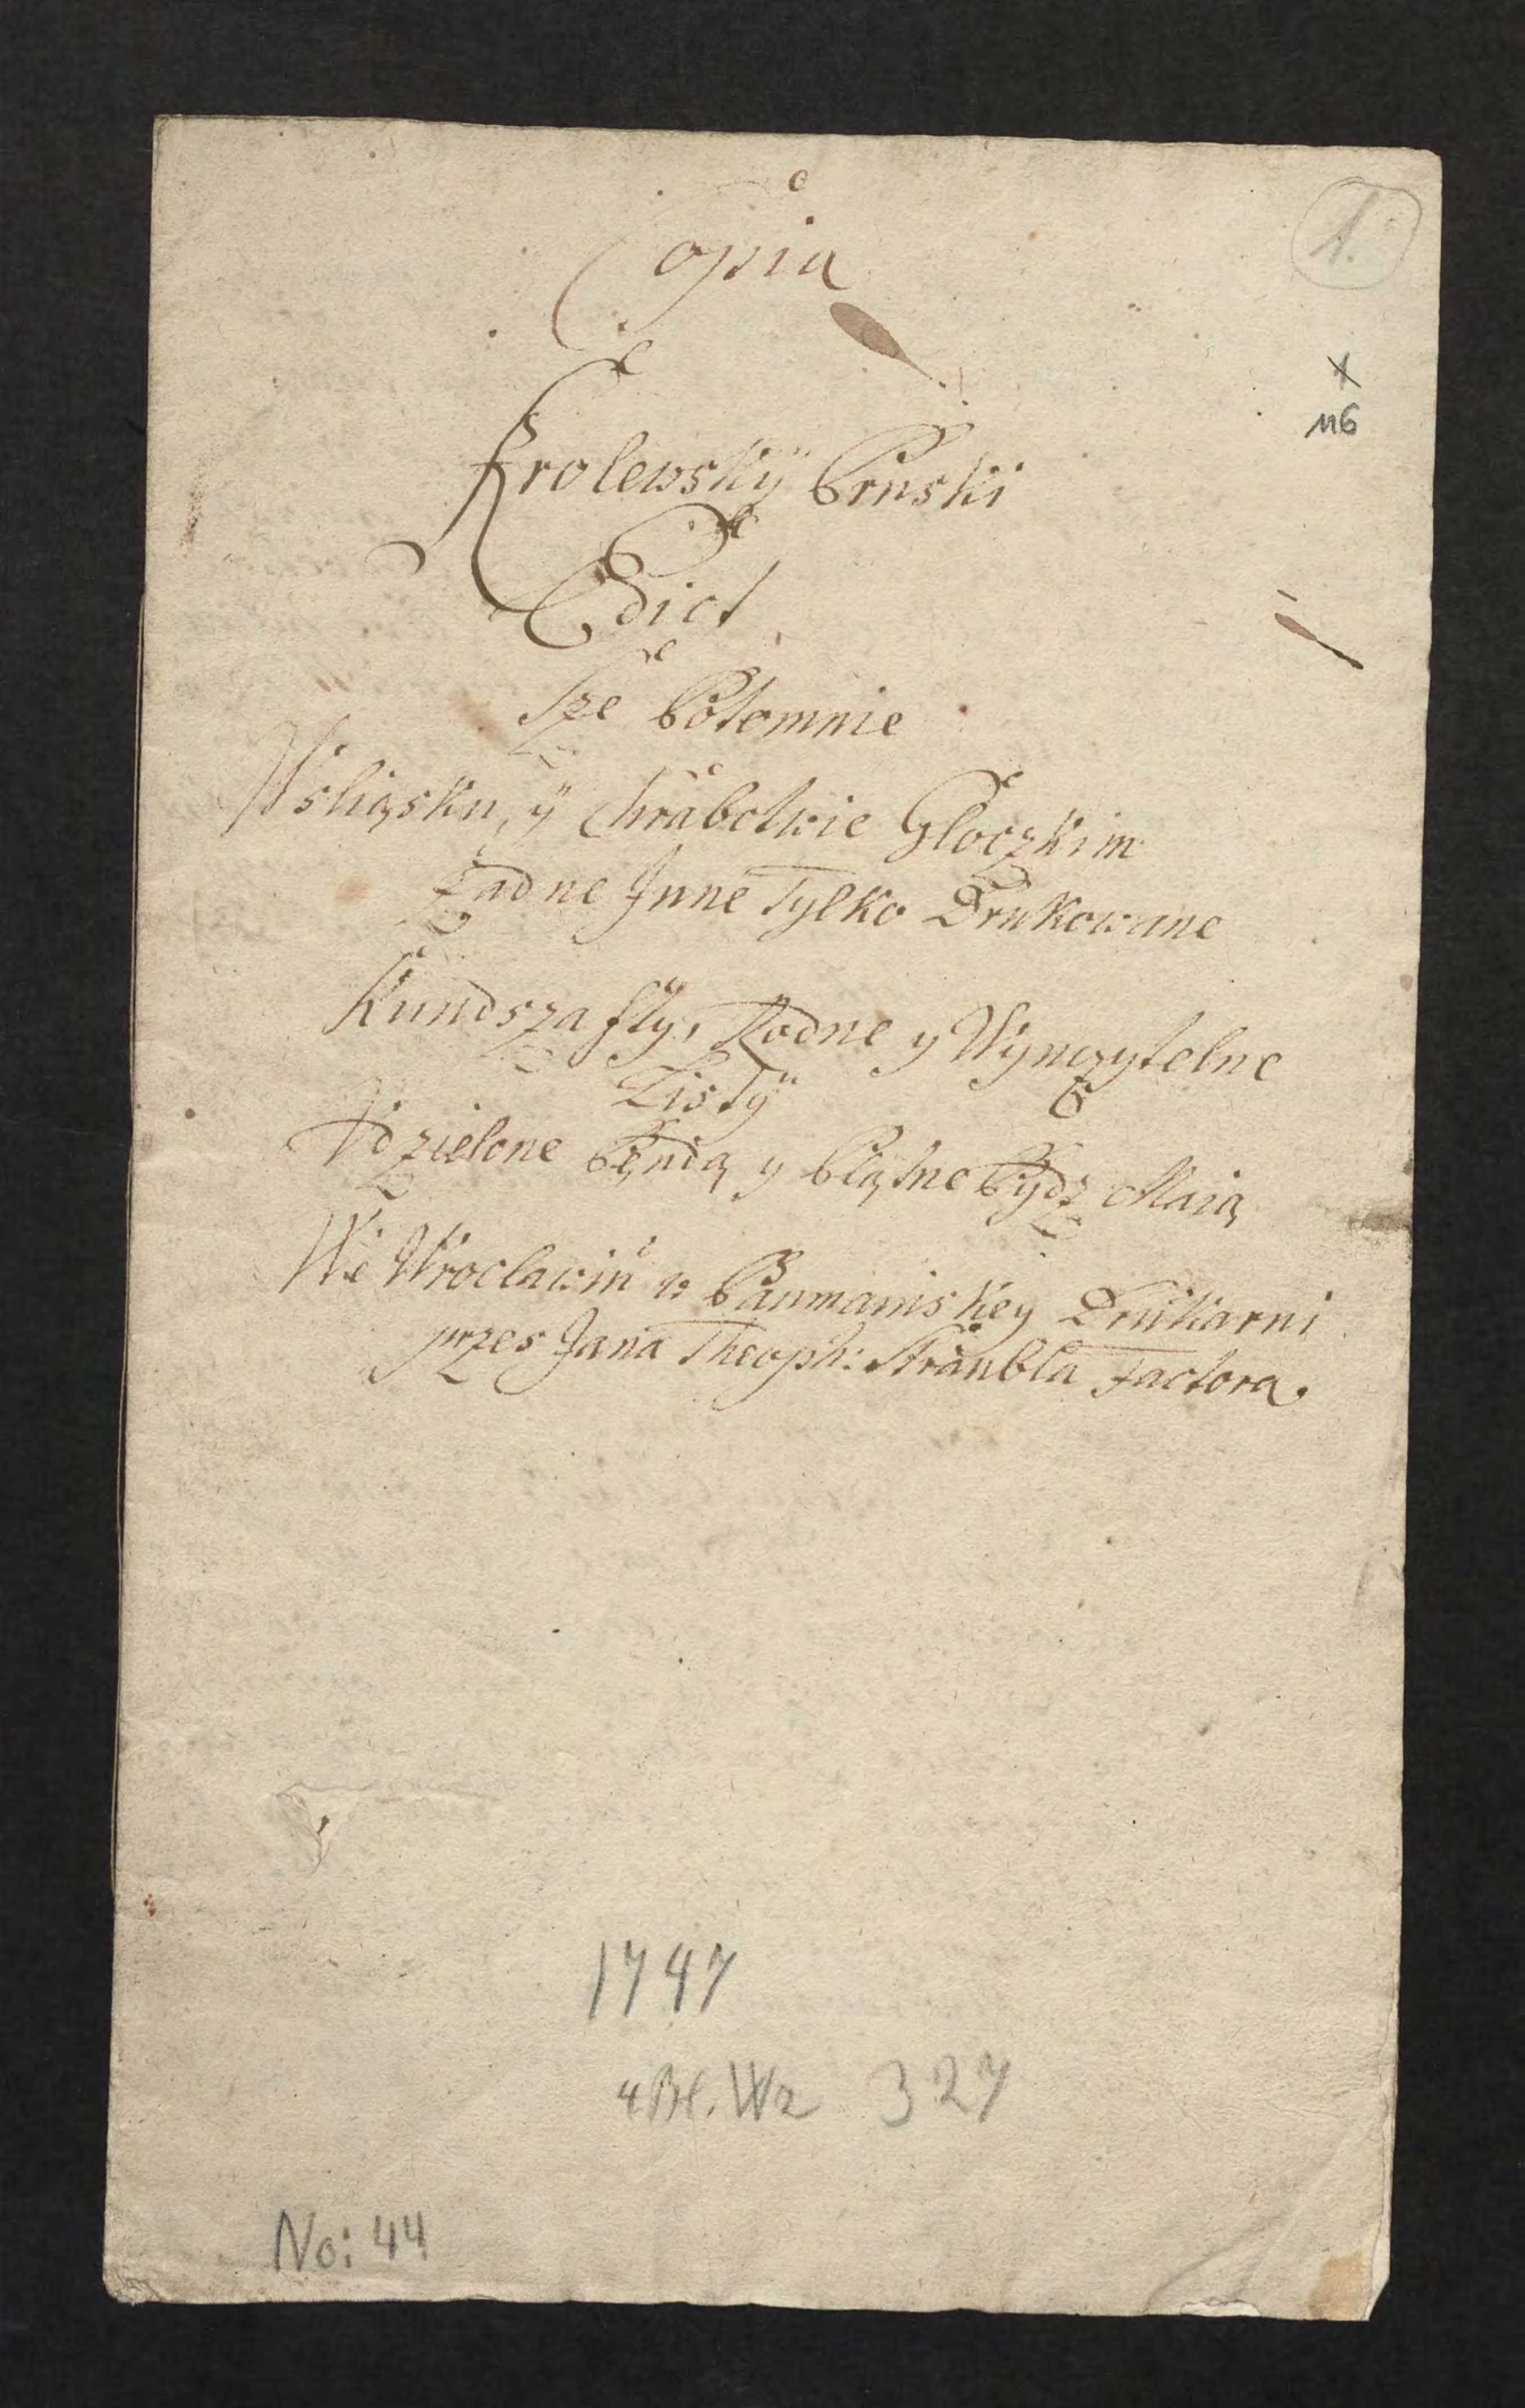 1.
Copia
116
Krolewskÿ Pruski
Edict
Jże Potomnie
Wsliąsku, ÿ Chrabctwie Gloczkim
żadne Jnne Tylko Drukowane
Kundszafty, Rodne y Wynczytelne
Listÿ
Vdzielone Będą y Płatne Bydz Maią
We Wroclawiu w Baumaniskey Drukarni
przes Jana Theoph: Straubla Factora.
1747
4 Bl. Wz 327
No: 44